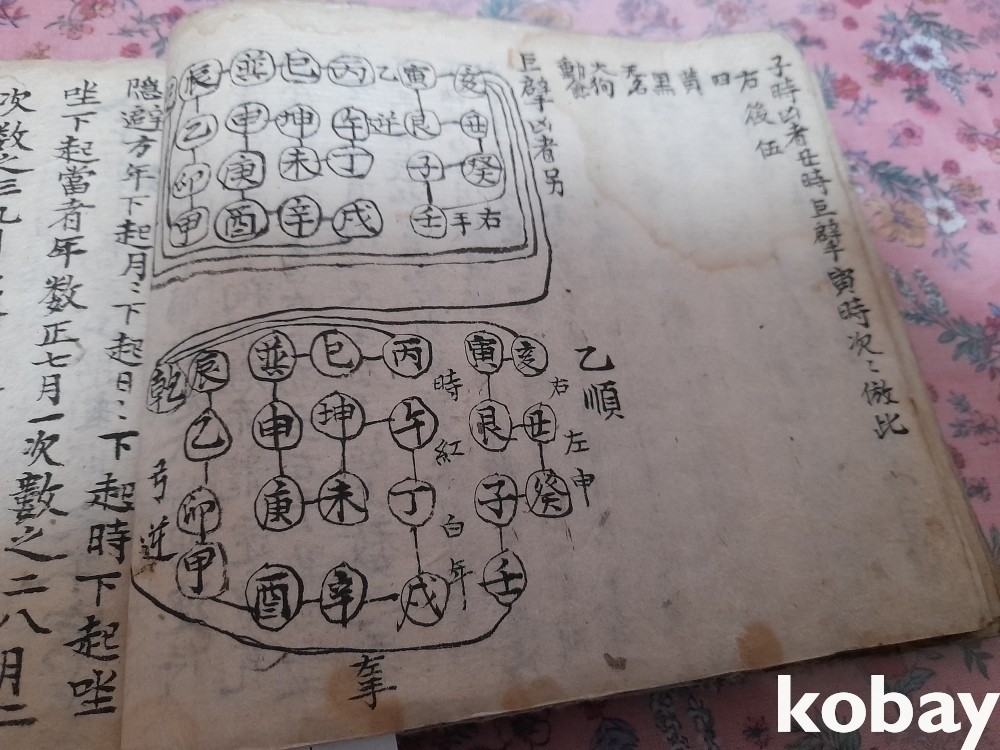 子時凶者丑時巨擘寅時次〻倣此
右後伍
四
黃
黑
犬狗
動
巨擘凶者另
亥 寅 乙 丙 巳 巽 辰
丑 艮 逆 午 坤 申 乙
癸 子 丁 未 庚 卯
右手 壬 戌 辛 酉 甲
乙順
亥 寅 丙 巳 巽 辰 乾
右 時
丑 艮 午 坤 申 乙
左 紅
申 癸 子 丁 未 庚 卯
白
年
壬 戌 辛 酉 甲
弓逆
左手
隱避方年下起月〻下起日〻下起時下起坐
坐下起當者年数正七月一次數之二八月二
次数之三九月
kobay